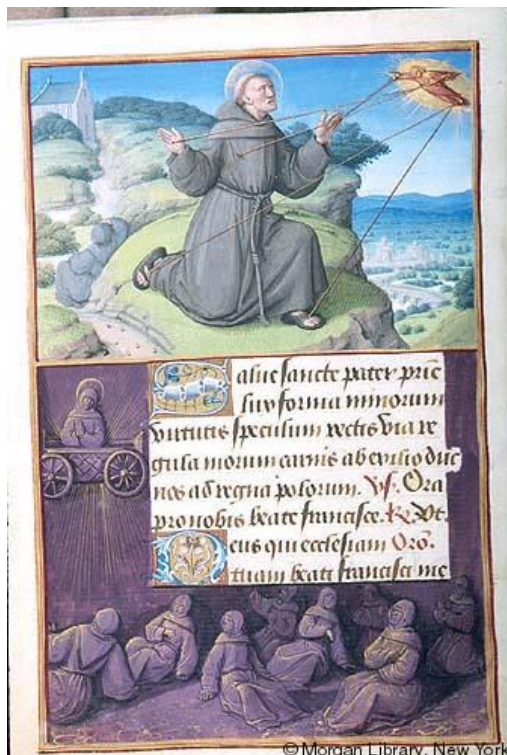 Salue sancte pater prie
lux forma minorum
virtutis speculum rectis via re
gula morum carnis ab exilio duc
nos ad regna polorum. Vs. Ora
pro nobis beate francisce. Rx. Vt.
Deus qui ecclesiam Oro.
tuam beati francisci me
© Morgan Library, New York